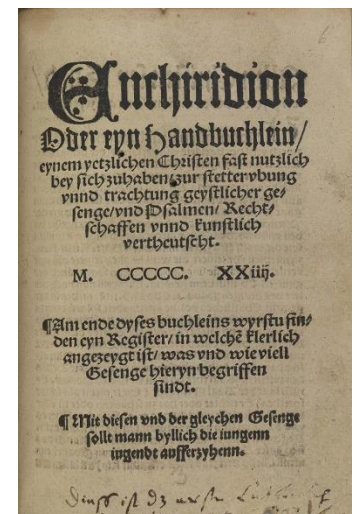 Enchiridion
Oder eyn Handbuchlein/
eynem yetzlichen Christen fast nutzlich
bey sich zuhaben/zur stetter vbung
vnnd trachtung geystlicher ge-
senge/vnd Psalmen/ Recht-
schaffen vnnd kunstlich
vertheutscht.
M. CCCCC. XXiiij.
¶Am ende dyses buchleins wyrstu fin-
den eyn Register/ in welchē klerlich
angezeygt ist/ was vnd wie viell
Gesenge hieryn begriffen
sindt.
¶ Mit diesen vnd der gleychen Gesenge
sollt mann byllich die iungenn
iugendt aufferzyhenn.